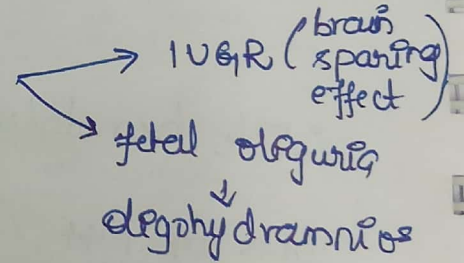 → IUGR (brain
sparing
effect)
→ fetal oliguria
↓
oligohydramnios